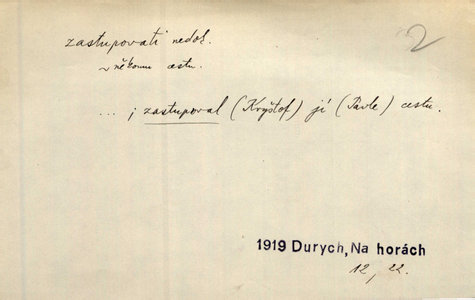 zastupovati nedok.
2
~ někomu cestu.
... ; zastupoval (Kryštof) jí (Pavle) cestu.
1919 Durych, Na horách
12, 22.